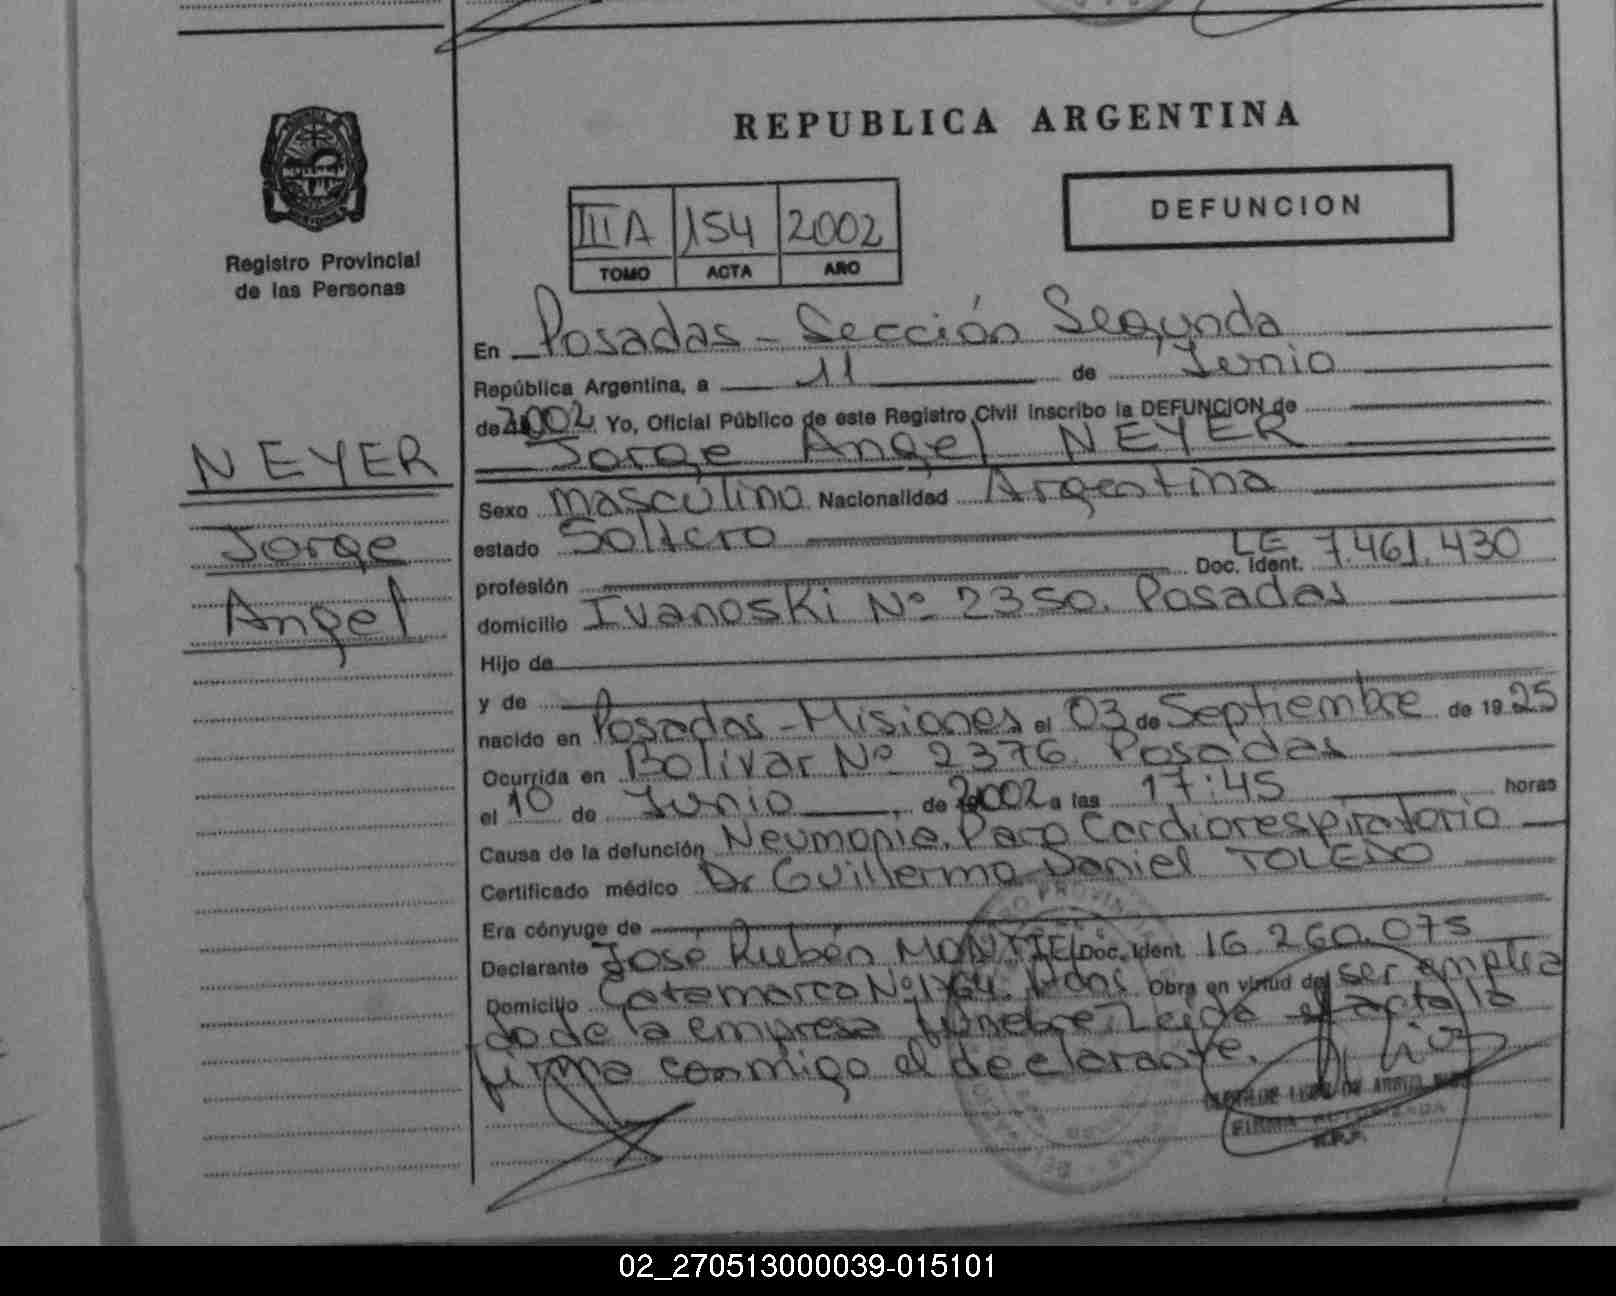 REPUBLICA ARGENTINA
DEFUNCION
III A 154 2002
TOMO ACTA AÑO
Registro Provincial
de las Personas
NEYER
Jorge
Angel
En Posadas - Sección Segunda
República Argentina, a 11 de Junio
de 2002 Yo, Oficial Público de este Registro Civil inscribo la DEFUNCION de
Jorge Angel NEYER
Sexo masculino Nacionalidad Argentina
estado Soltero
profesión Doc. Ident. LE 7.461.430
domicilio Ivanoski Nº 2350. Posadas
Hijo de
y de
nacido en Posadas - Misiones el 03 de Septiembre de 19 25
Ocurrida en Bolivar Nº 2376. Posadas
el 10 de Junio de 2002 a las 17:45 horas
Causa de la defunción Neumonia. Paro Cardiorespiratorio
Certificado médico Dr Guillermo Daniel TOLEDO
Era cónyuge de
Declarante José Rubén MONTIEL Doc. Ident. 16.260.075
Domicilio Catamarca Nº 1764. Pdas. Obra en virtud de ser emplea
do de la empresa fúnebre. Leida el acta la
firma conmigo el declarante.
FIRMA AUTORIZADA
R.P.P.
02_270513000039-015101